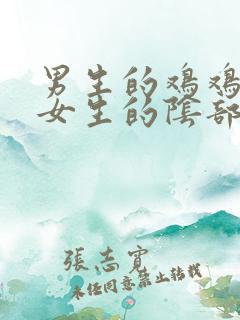 男生的鸡鸡
女生的陰部
張志寬
未任同意禁止转载